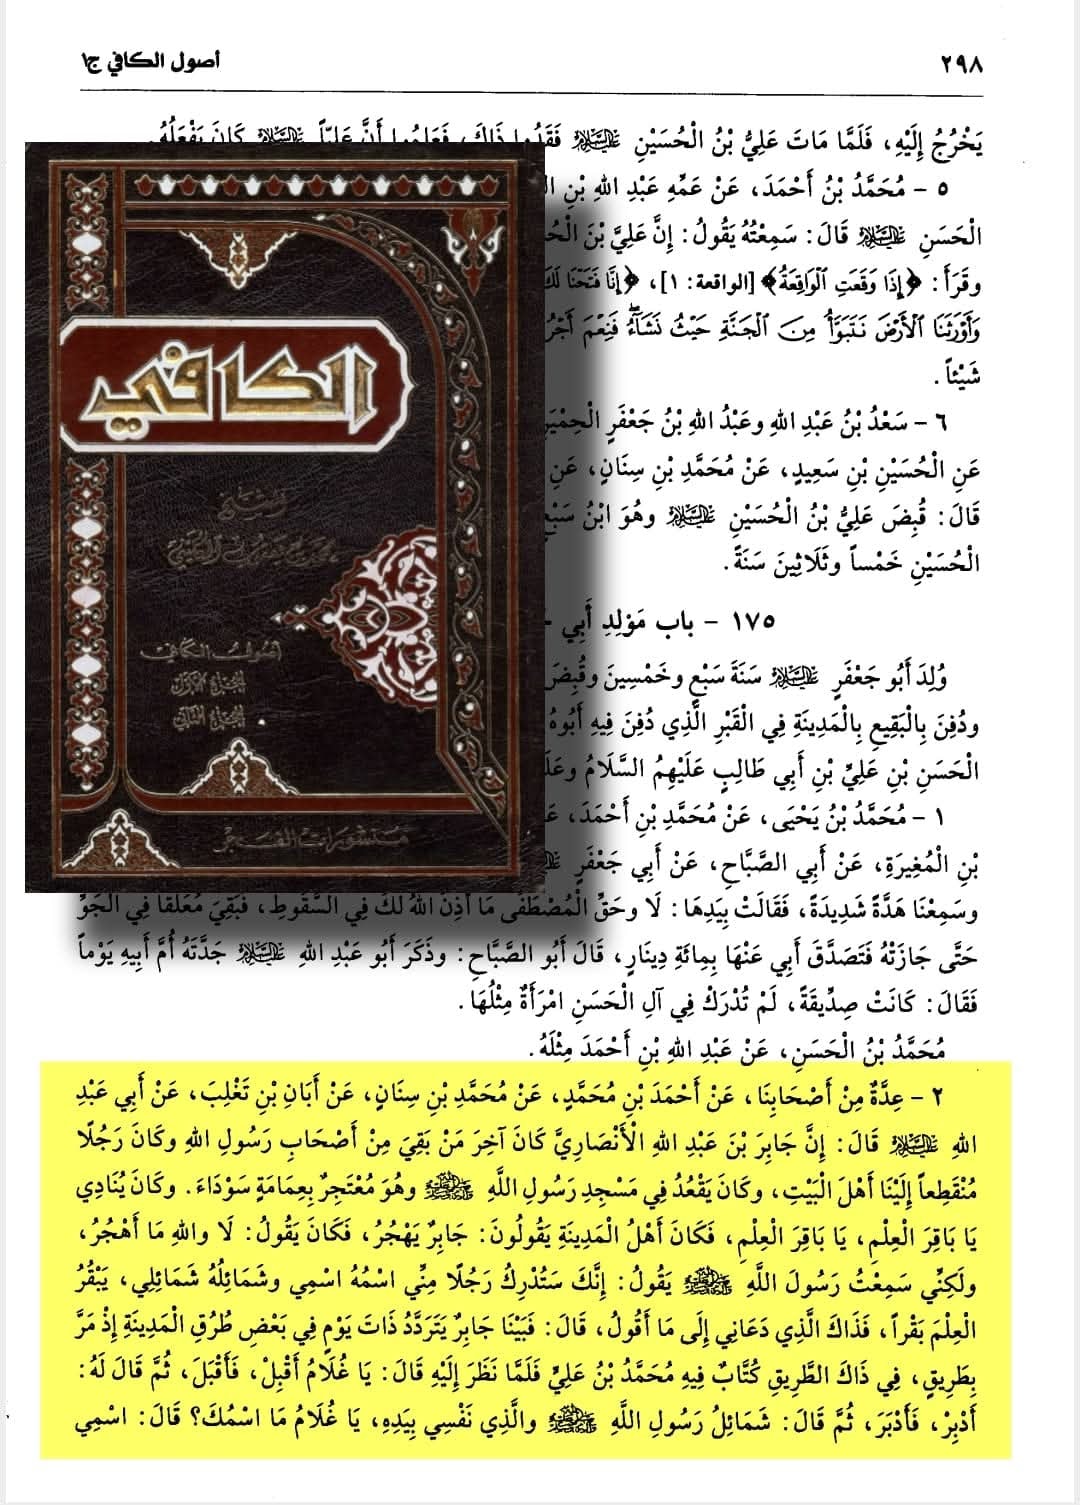 ٢٩٨
أصول الكافي ج١
يَخْرُجُ إِلَيْهِ، فَلَمَّا مَاتَ عَلِيُّ بْنُ الْحُسَيْنِ عَلَيْهِ السَّلَامُ فَقَدُوا ذَاكَ، فَعَلِمُوا أَنَّ عَلِيّاً عَلَيْهِ السَّلَامُ كَانَ يَفْعَلُهُ.
٥ - مُحَمَّدُ بْنُ أَحْمَدَ، عَنْ عَمِّهِ عَبْدِ اللهِ بْنِ
الْحَسَنِ عَلَيْهِ السَّلَامُ قَالَ: سَمِعْتُهُ يَقُولُ: إِنَّ عَلِيَّ بْنَ
وقَرَأَ: ﴿إِذَا وَقَعَتِ الْوَاقِعَةُ﴾ [الواقعة: ١]، ﴿إِنَّا فَتَحْنَا
وَأَوْرَثَنَا الْأَرْضَ نَتَبَوَّأُ مِنَ الْجَنَّةِ حَيْثُ نَشَاءُ فَنِعْمَ أَجْرُ
شَيْئاً.
٦ - سَعْدُ بْنُ عَبْدِ اللهِ وعَبْدُ اللهِ بْنُ جَعْفَرٍ
عَنِ الْحُسَيْنِ بْنِ سَعِيدٍ، عَنْ مُحَمَّدِ بْنِ سِنَانٍ، عَنِ
قَالَ: قُبِضَ عَلِيُّ بْنُ الْحُسَيْنِ عَلَيْهِ السَّلَامُ وهُوَ ابْنُ سَبْعٍ
الْحُسَيْنِ خَمْساً وثَلَاثِينَ سَنَةً.
١٧٥ - باب مَوْلِدِ أَبِي
وُلِدَ أَبُو جَعْفَرٍ عَلَيْهِ السَّلَامُ سَنَةَ سَبْعٍ وخَمْسِينَ وقُبِضَ
ودُفِنَ بِالْبَقِيعِ بِالْمَدِينَةِ فِي الْقَبْرِ الَّذِي دُفِنَ فِيهِ أَبُوهُ
الْحَسَنِ بْنِ عَلِيِّ بْنِ أَبِي طَالِبٍ عَلَيْهِمُ السَّلَامُ
١ - مُحَمَّدُ بْنُ يَحْيَى، عَنْ مُحَمَّدِ بْنِ أَحْمَدَ،
بْنِ الْمُغِيرَةِ، عَنْ أَبِي الصَّبَّاحِ، عَنْ أَبِي جَعْفَرٍ
وسَمِعْنَا هَدَّةً شَدِيدَةً، فَقَالَتْ بِيَدِهَا: لَا وحَقِّ الْمُصْطَفَى مَا أَذِنَ اللهُ لَكَ فِي السُّقُوطِ، فَبَقِيَ مُعَلَّقاً فِي الْجَوِّ
حَتَّى جَازَتْهُ فَتَصَدَّقَ أَبِي عَنْهَا بِمِائَةِ دِينَارٍ، قَالَ أَبُو الصَّبَّاحِ: وذَكَرَ أَبُو عَبْدِ اللهِ عَلَيْهِ السَّلَامُ جَدَّتَهُ أُمَّ أَبِيهِ يَوْماً
فَقَالَ: كَانَتْ صِدِّيقَةً، لَمْ تُدْرَكْ فِي آلِ الْحَسَنِ امْرَأَةٌ مِثْلُهَا.
مُحَمَّدُ بْنُ الْحَسَنِ، عَنْ عَبْدِ اللهِ بْنِ أَحْمَدَ مِثْلَهُ.
٢ - عِدَّةٌ مِنْ أَصْحَابِنَا، عَنْ أَحْمَدَ بْنِ مُحَمَّدٍ، عَنْ مُحَمَّدِ بْنِ سِنَانٍ، عَنْ أَبَانِ بْنِ تَغْلِبَ، عَنْ أَبِي عَبْدِ
اللهِ عَلَيْهِ السَّلَامُ قَالَ: إِنَّ جَابِرَ بْنَ عَبْدِ اللهِ الْأَنْصَارِيَّ كَانَ آخِرَ مَنْ بَقِيَ مِنْ أَصْحَابِ رَسُولِ اللهِ وكَانَ رَجُلًا
مُنْقَطِعاً إِلَيْنَا أَهْلَ الْبَيْتِ، وكَانَ يَقْعُدُ فِي مَسْجِدِ رَسُولِ اللَّهِ ﷺ وهُوَ مُعْتَجِرٌ بِعِمَامَةٍ سَوْدَاءَ. وكَانَ يُنَادِي
يَا بَاقِرَ الْعِلْمِ، يَا بَاقِرَ الْعِلْمِ، فَكَانَ أَهْلُ الْمَدِينَةِ يَقُولُونَ: جَابِرٌ يَهْجُرُ، فَكَانَ يَقُولُ: لَا واللهِ مَا أَهْجُرُ،
ولَكِنِّي سَمِعْتُ رَسُولَ اللَّهِ ﷺ يَقُولُ: إِنَّكَ سَتُدْرِكُ رَجُلًا مِنِّي اسْمُهُ اسْمِي وشَمَائِلُهُ شَمَائِلِي، يَبْقُرُ
الْعِلْمَ بَقْراً، فَذَاكَ الَّذِي دَعَانِي إِلَى مَا أَقُولُ، قَالَ: فَبَيْنَا جَابِرٌ يَتَرَدَّدُ ذَاتَ يَوْمٍ فِي بَعْضِ طُرُقِ الْمَدِينَةِ إِذْ مَرَّ
بِطَرِيقٍ، فِي ذَاكَ الطَّرِيقِ كُتَّابٌ فِيهِ مُحَمَّدُ بْنُ عَلِيٍّ فَلَمَّا نَظَرَ إِلَيْهِ قَالَ: يَا غُلَامُ أَقْبِلْ، فَأَقْبَلَ، ثُمَّ قَالَ لَهُ:
أَدْبِرْ، فَأَدْبَرَ، ثُمَّ قَالَ: شَمَائِلُ رَسُولِ اللَّهِ ﷺ والَّذِي نَفْسِي بِيَدِهِ، يَا غُلَامُ مَا اسْمُكَ؟ قَالَ: اسْمِي
الكافي
للشيخ
محمد بن يعقوب الكليني
أصول الكافي
الجزء الأول
الجزء الثاني
منشورات الفجر